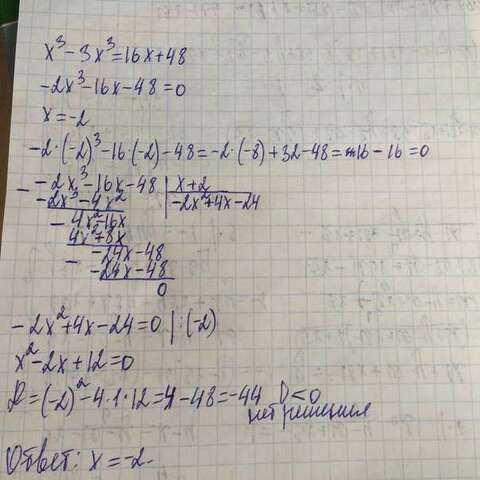 x³ - 3x³ = 16x + 48
-2x³ - 16x - 48 = 0
x = -2
-2·(-2)³ - 16·(-2) - 48 = -2·(-8) + 32 - 48 = 16 - 16 = 0
-2x³ - 16x - 48 | x + 2
-2x³ - 4x² | -2x² + 4x - 24
4x² - 16x
4x² + 8x
-24x - 48
-24x - 48
0
-2x² + 4x - 24 = 0 | :(-2)
x² - 2x + 12 = 0
D = (-2)² - 4·1·12 = 4 - 48 = -44 D < 0
нет решения
Ответ: x = -2.